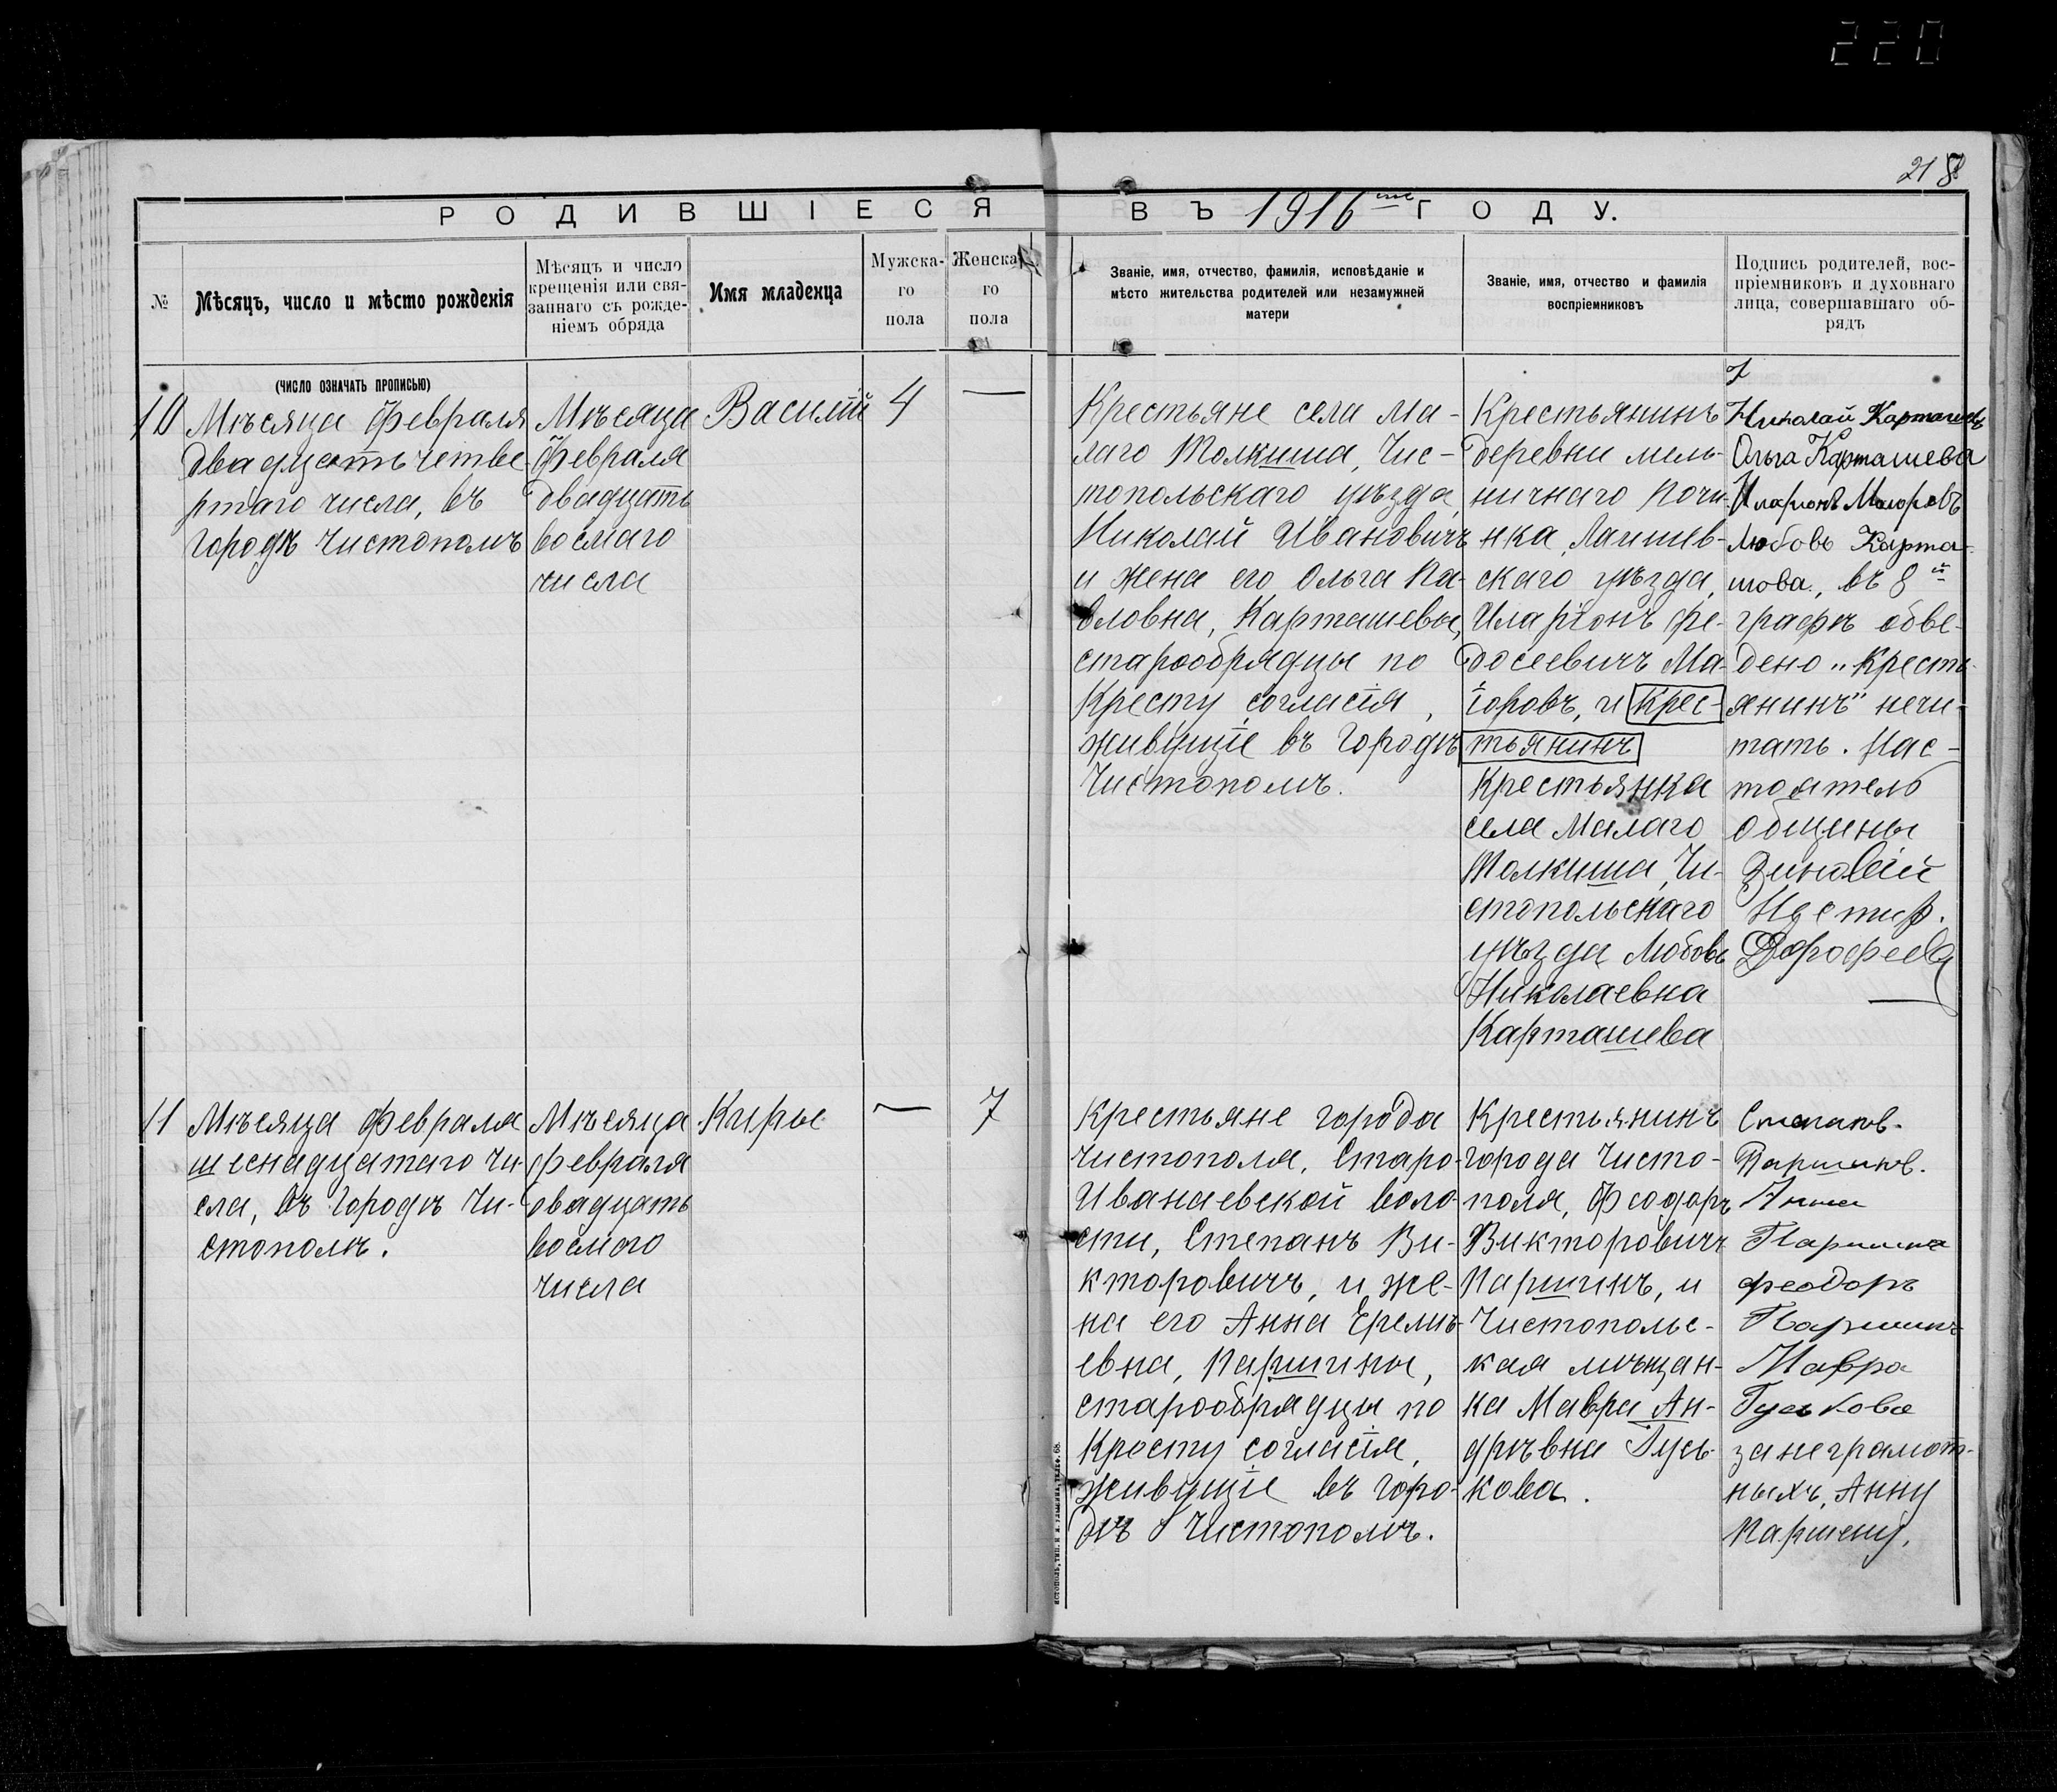 220
218
РОДИВШІЕСЯ ВЪ 1916мъ ГОДУ.
№
Мѣсяцъ, число и мѣсто рожденія
Мѣсяцъ и число
крещенія или свя-
заннаго съ рожде-
ніемъ обряда
Имя младенца
Мужска-
го
пола
Женска
го
пола
Званіе, имя, отчество, фамилія, исповѣданіе и
мѣсто жительства родителей или незамужней
матери
Званіе, имя, отчество и фамилія
воспріемниковъ
Подпись родителей, вос-
пріемниковъ и духовнаго
лица, совершавшаго об-
рядъ
(ЧИСЛО ОЗНАЧАТЬ ПРОПИСЬЮ)
10
Мѣсяца Февраля
двадцать четве
ртаго числа, въ
городѣ Чистополѣ
Мѣсяца
Февраля
двадцать
восмаго
числа
Василій
4
—
Крестьяне села Ма-
лаго Толкиша, Чис-
топольскаго уѣзда,
Николай Ивановичъ
и жена его Ольга Па-
вловна, Карташевы,
старообрядцы по
Кресту согласія,
живущіе въ городѣ
Чистополѣ.
Крестьянинъ
деревни мель-
ничнаго Почи-
нка, Лаишев-
скаго уѣзда,
Иларіонъ Фе-
досеевичъ Ма-
іоровъ, и крес-
тьянинъ
крестьянка
села Малаго
Толкиша, Чи-
стопольскаго
уѣзда Любовь
Николаевна
Карташева
Николай Карташевъ
Ольга Карташева
Иларионъ Маиоровъ
Любовь Карта-
шова, въ 8й
графѣ обве-
дено „Кресть-
янинъ" нечи-
тать. Нас-
тоятель
общины
Зиновій
Дорофеевъ
11
Мѣсяца Февраля
шеснадцатаго чи-
сла, въ городѣ Чи-
стополѣ.
Мѣсяца
февраля
двадцать
восмого
числа
Киры
—
7
Крестьяне города
Чистополя, Старо-
Иванаевской воло-
сти, Степанъ Ви-
кторовичъ, и же-
на его Анна Еремѣ-
евна, Паршины,
старообрядцы по
Кресту согласія,
живущіе въ горо-
дѣ Чистополѣ.
Крестьянинъ
города Чисто-
поля, Феодоръ
Викторовичъ
Паршинъ, и
Чистопольс-
кая мѣщан-
ка Мавра Ан-
дрѣвна Гусь-
кова.
Степанъ.
Паршинъ.
Анна
Паршина
феодоръ
Паршинъ
Мавра
Гуськова
за неграмот-
ныхъ, Анну
Паршену,